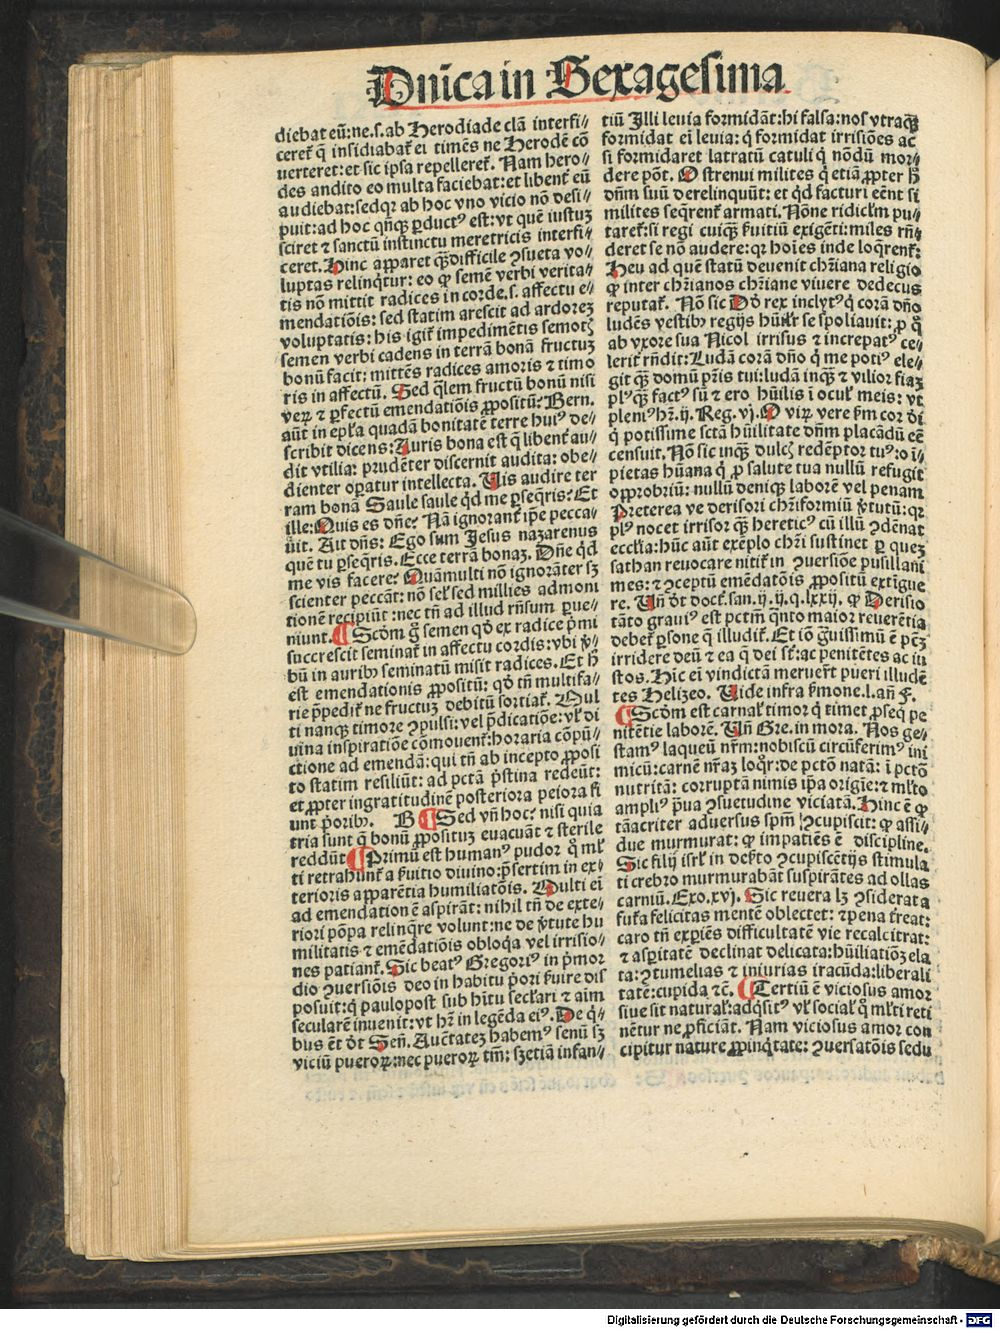 Dnīca in Sexagesima
diebat eū: ne.s. ab Herodiade clā interfi⸗
ceret᷑ q̄ insidiabat᷑ ei timēs ne Herodē cō
uerteret: et sic ipsa repelleret᷑. Nam hero⸗
des audito eo multa faciebat: et libent᷑ eū
audiebat: sedqꝛ ab hoc vno vicio nō desi⸗
puit: ad hoc qn̄qꝫ ꝑductꝰ est: vt quē iustuꝫ
sciret ⁊ sanctū instinctu meretricis interfi⸗
ceret. Hinc apparet qꝫ difficile ꝯsueta vo⸗
luptas relinq̄tur: eo ꝙ semē verbi verita⸗
tis nō mittit radices in corde.s. affectu e⸗
mendatiōis: sed statim arescit ad ardoreꝫ
voluptatis: his igit᷑ impedimētis semotꝭ
semen verbi cadens in terrā bonā fructuꝫ
bonū facit: mittēs radices amoris ⁊ timo
ris in affectū. Sed q̄lem fructū bonū nisi
veꝝ ⁊ ꝑfectū emendatiōis ꝓpositū? Bern.
aūt in epl'a quadā bonitatē terre huiꝰ de⸗
scribit dicens: Auris bona est q̄ libent᷑ au⸗
dit vtilia: prudēter discernit audita: obe⸗
dienter oꝑatur intellecta. Uis audire ter
ram bonā Saule saule qd̓ me ꝑseq̄ris? Et
ille: Quis es dn̄e? Nā ignorant᷑ ip̄e pecca⸗
uit. Ait dn̄s: Ego sum Jesus nazarenus
quē tu ꝑseq̄ris. Ecce terrā bonaꝫ. Dn̄e qd̓
me vis facere? Quāmulti nō ignorāter sꝫ
scienter peccāt: nō sel' sed millies admoni
tionē recipiūt: nec tn̄ ad illud rn̄sum ꝑue⸗
niunt. ¶ Scd̓m ḡ semen qd̓ ex radice p̄mi
succrescit seminat᷑ in affectu cordis: vbi v̓⸗
bū in aurib᷒ seminatū misit radices. Et h̄
est emendationis ꝓpositū: qd̓ tn̄ multifa⸗
rie p̄pedit᷑ ne fructuꝫ debitū sortiat᷑. Mul
ti nanqꝫ timore ꝯpulsi: vel p̄dicatiōe: vl' di
uina inspiratiōe cōmouent᷑: horaria cōpū⸗
ctione ad emendā: qui tn̄ ab incepto ꝓposi
to statim resiliūt: ad pctā p̄stina redeūt:
et ꝓpter ingratitudinē posteriora peiora fi
unt p̓orib᷒. B ¶ Sed vn̄ hoc? nisi quia
tria sunt q̄ bonū ꝓpositūꝫ euacuāt ⁊ sterile
reddūt ¶ Primū est humanꝰ pudor q̄ ml'
ti retrahunt᷑ a s̓uitio diuino: p̄sertim in ex⸗
terioris apparētia humiliatōnis. Multi ei̅
ad emendationē aspirāt: nihil tn̄ de exte⸗
riori pōpa relinq̄re volunt: ne de v̓tute hu
militatis ⁊ emēdatiōis obloq̄a vel irrisio⸗
nes patiant᷑. Sic beatꝰ Gregoriꝰ in p̓mor
dio ꝯuersiōis deo in habitu p̓ori s̓uire dis
posuit: q̄ paulopost sub h̄itu secl'ari ⁊ aim
secularē inuenit: vt hr̄ in legēda eiꝰ. De q̓⸗
bus ēt dt̓ Sen̄. Auētateꝫ habemꝰ senū sꝫ
viciū pueroꝝ: nec pueroꝝ tm̄: sꝫ etiā infan⸗
tiū Illi leuia formidāt: hi falsa: nos vtraqꝫ
formidat ei̅ leuia: q̄ formidat irrisiōes ac
si formidaret latratū catuli q̓ nōdū mor⸗
dere pōt. O strenui milites q̓ etiā ꝓpter h̄
dn̄m suū derelinquūt: et qd̓ facturi eēnt si
milites seq̄rent᷑ armati. Nōne ridicl'm pu⸗
taret᷑: si regi cuiqꝫ s̓uitiū exigēti: miles rn̄⸗
deret se nō audere: qꝛ hoīes inde loq̄rent᷑:
Heu ad quē statū deuenit chr̄iana religio
ꝙ inter chr̄ianos chr̄iane viuere dedecus
reputat᷑. Nō sic Dd̓ rex inclytꝰ q̓ corā dn̄o
ludēs vestib᷒ regijs hūil'r se spoliauit: ꝓ q̄
ab vxore sua Nicol irrisus ⁊ increpatꝰ ce⸗
lerit᷑ rn̄dit: Ludā corā dn̄o q̓ me potiꝰ ele⸗
git qꝫ domū pr̄is tui: ludā inqꝫ ⁊ vilior fiaꝫ
plꝰ qꝫ factꝰ sū ⁊ ero hūilis i ocul' meis: vt
pleniꝰ hr̄.ij. Reg.vj. O viꝝ vere s̄m cor dī
q̓ potissime sctā hūilitate dn̄m placādū eē
censuit. Nō sic inqꝫ dulcꝭ redēptor tuꝰ: o ī⸗
pietas hūana q̓ ꝓ salute tua nullū refugit
opprobriū: nullū deniqꝫ laborē vel penam
Preterea ve derisori chr̄iformiū v̓tutū: qꝛ
plꝰ nocet irrisor qꝫ hereticꝰ cū illū ꝯdēnat
eccl'ia: hūc aūt exēplo chr̄i sustinet ꝑ queꝫ
sathan reuocare nitit᷑ in ꝯuersiōe pusillani
mes: ⁊ ꝯceptū emēdatōis ꝓpositū extīgue
re. Un̄ dt̓ doct.san.ij.ij.q.lxxij. ꝙ Derisio
tāto grauiꝰ est pctm̄ q̄nto maior reuerētia
debet᷑ ꝑsone q̄ illudit᷑. Et iō g̓uissimū ē pctꝫ
irridere deū ⁊ ea q̄ dei st̄: ac penitētes ac iu
stos. Hic ei̅ vindictā meruer̄t pueri illudē
tes Helizeo. Uide infra s̓mone.l.an̄ F.
¶ Scd̓m est carnal' timor q̓ timet ꝓseq̄ pe
nitētie laborē. Un̄ Gre. in mora. Nos ge⸗
stamꝰ laqueū nr̄m: nobiscū circūferimꝰ ini
micū: carnē nr̄aꝫ loq̄r: de pctō natā: i pctō
nutritā: corruptā nimis ip̄a origīe: ⁊ ml'to
ampliꝰ p̄ua ꝯsuetudine viciatā. Hinc ē ꝙ
tā acriter aduersus spm̄ ꝯcupiscit: ꝙ assi⸗
due murmurat: ꝙ impatiēs ē discipline.
Sic filij isrl' in desr̄to ꝯcupiscētijs stimula
ti crebro murmurabāt suspirātes ad ollas
carniū. Exo.xvj. Sic reuera lꝫ ꝯsiderata
fut᷑a felicitas mentē oblectet: ⁊ pena t᷑reat:
caro tn̄ exꝑiēs difficultatē vie recalcitrat:
⁊ asꝑitatē declinat delicata: hūiliatiōꝫ ela
ta: ꝯtumelias ⁊ iniurias iracūda: liberali
tatē: cupida ⁊c̄. ¶ Tertiū ē viciosus amor
siue sit natural': adq̄sitꝰ vl' social' q̄ ml'ti reti
nētur ne ꝓficiāt. Nam viciosus amor con
cipitur nature ꝓpinq̄tate: ꝯuersatōis sedu
Digitalisierung gefördert durch die Deutsche Forschungsgemeinschaft - DFG